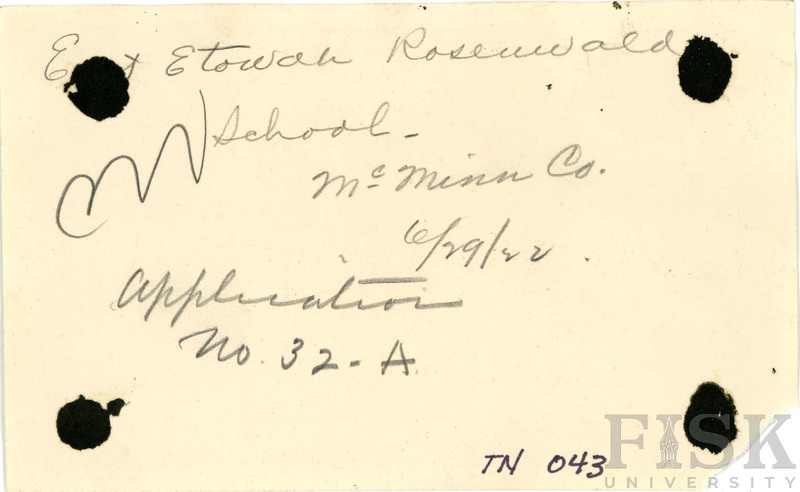 East Etowah Rosenwald
School -
Mc Minn Co.
6/29/22.
Application
No. 32-A
TN 043
FISK
UNIVERSITY